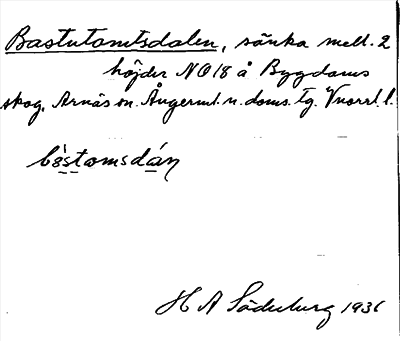 Bastutomtsdalen, sänka mell. 2
höjder NO 18 å Bygdoms
skog. Arnäs sn. Ångerml. n. doms. tg. Vnorrl. l.
bàstomsdán
H A Söderberg 1936